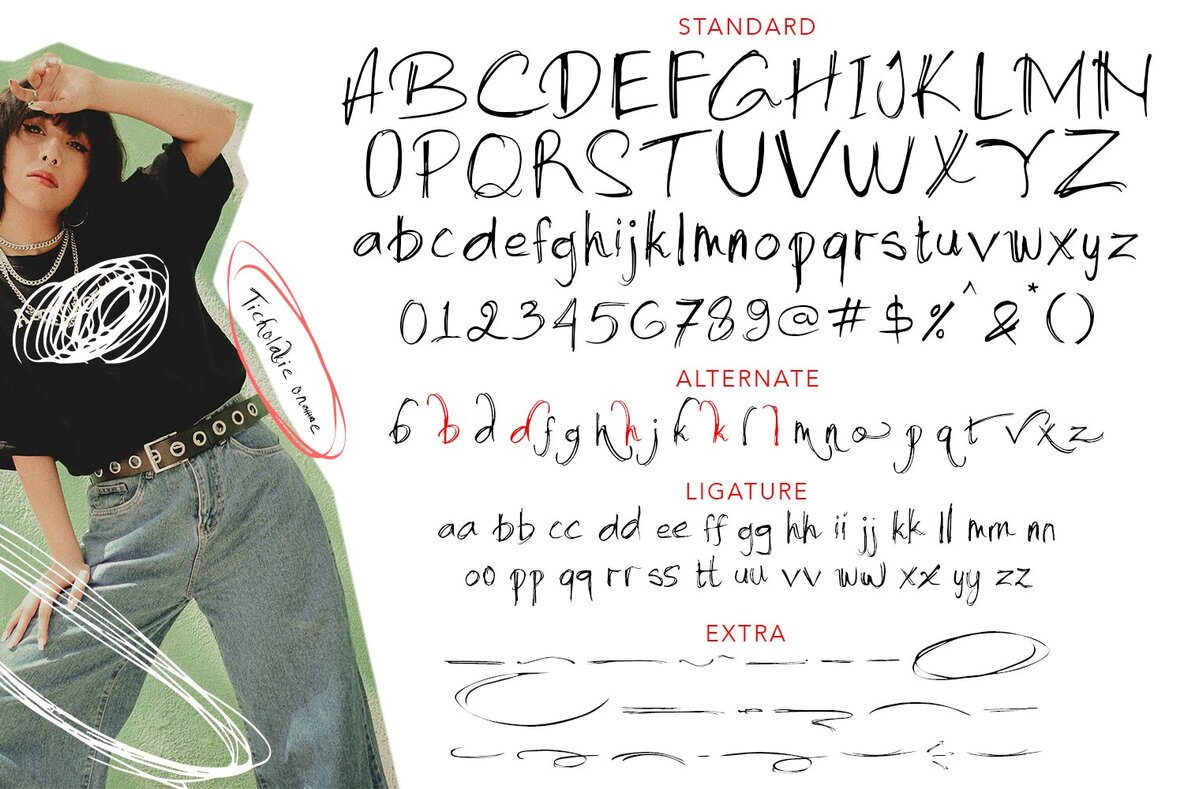 STANDARD
ABCDEFGHIJKLMN
OPQRSTUVWXYZ
abcdefghijklmnopqrstuvwxyz
0123456789@#$%^&*()
ALTERNATE
b b d d f g h h j k k l l m n o p q t v x z
LIGATURE
aa bb cc dd ee ff gg hh ii jj kk ll mm nn
oo pp qq rr ss tt uu vv ww xx yy zz
EXTRA